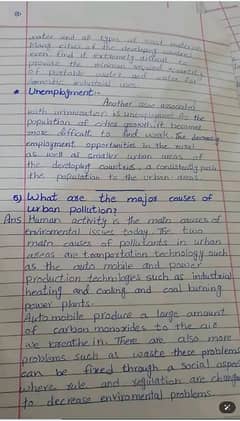 water and all types of
Many cities of the developing
even find it extremely difficult to
provide the minimum required quantity
of portable water and water for
domestic industrial uses.
* Unemployment:-
Another issue associated
with urbanisation is unemployment. As the
population of cities growth, it become
more difficult to find work. The
employment opportunities in the rural
as well as smaller urban areas of
the developing countries, a consistently push
the population to the urban areas.
5) What are the major causes of
urban pollution?
Ans Human activity is the main causes of
enviromental issues today. The two
main causes of pollutants in urban
areas are transportation technology such
as the auto mobile and power
production technologies such as industrial
heating and cooling and coal burning
power plants.
Automobile produce a large amount
of carbon monoxides to the air
we breathe in. There are also more
problems such as waste these problems
can be fixed through a social aspect
where rule and regulation are change
to decrease enviromental problems.